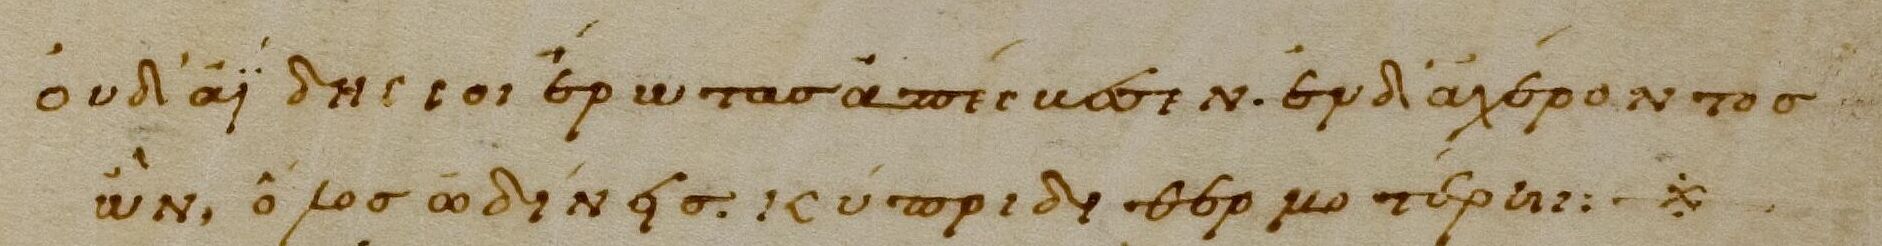 ὀυδ' ἀΐδης σοι ἔρωτας ἀπέσβεσεν. ἐν δ' ἀχέροντος
ὢν, ὅλος ὠδίνεις. κύπριδι θερμοτέρηι: